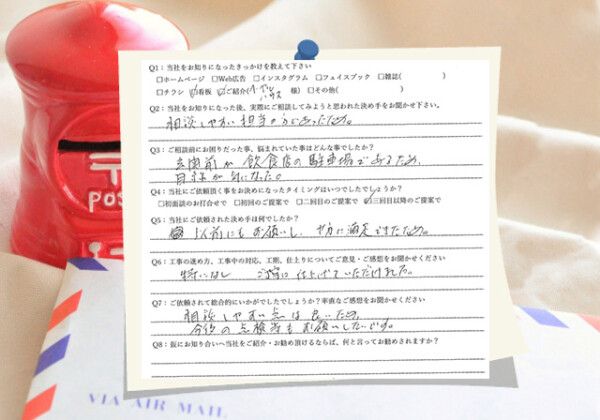 Q1：当社をお知りになったきっかけを教えて下さい
□ホームページ □Web広告 □インスタグラム □フェイスブック □雑誌( )
□チラシ ☑看板 ☑ご紹介( 様) □その他( )
Q2：当社をお知りになった後、実際にご相談してみようと思われた決め手をお聞かせ下さい。
相談しやすい担当の方であったため。
Q3：ご相談前にお困りだった事、悩まれていた事はどんな事でしたか？
玄関前が飲食店の駐車場であるため、
目線が気になった。
Q4：当社にご依頼頂く事をお決めになったタイミングはいつでしたでしょうか？
□初面談のお打合せで □初回のご提案で □二回目のご提案で ☑三回目以降のご提案で
Q5：当社にご依頼された決め手は何でしたか？
以前にもお願いし、 満足できたため。
Q6：工事の進め方、工事中の対応、工期、仕上りについてご意見・ご感想をお聞かせください
特になし ご丁寧に仕上げていただけた。
Q7：ご依頼されて総合的にいかがでしたでしょうか？率直なご感想をお聞かせください
相談しやすい点は良いため、
今後の点検等もお願いしたいです。
Q8：仮にお知り合いへ当社をご紹介・お勧め頂けるならば、何と言ってお勧めされますか？
POS
VIA AIR MAIL